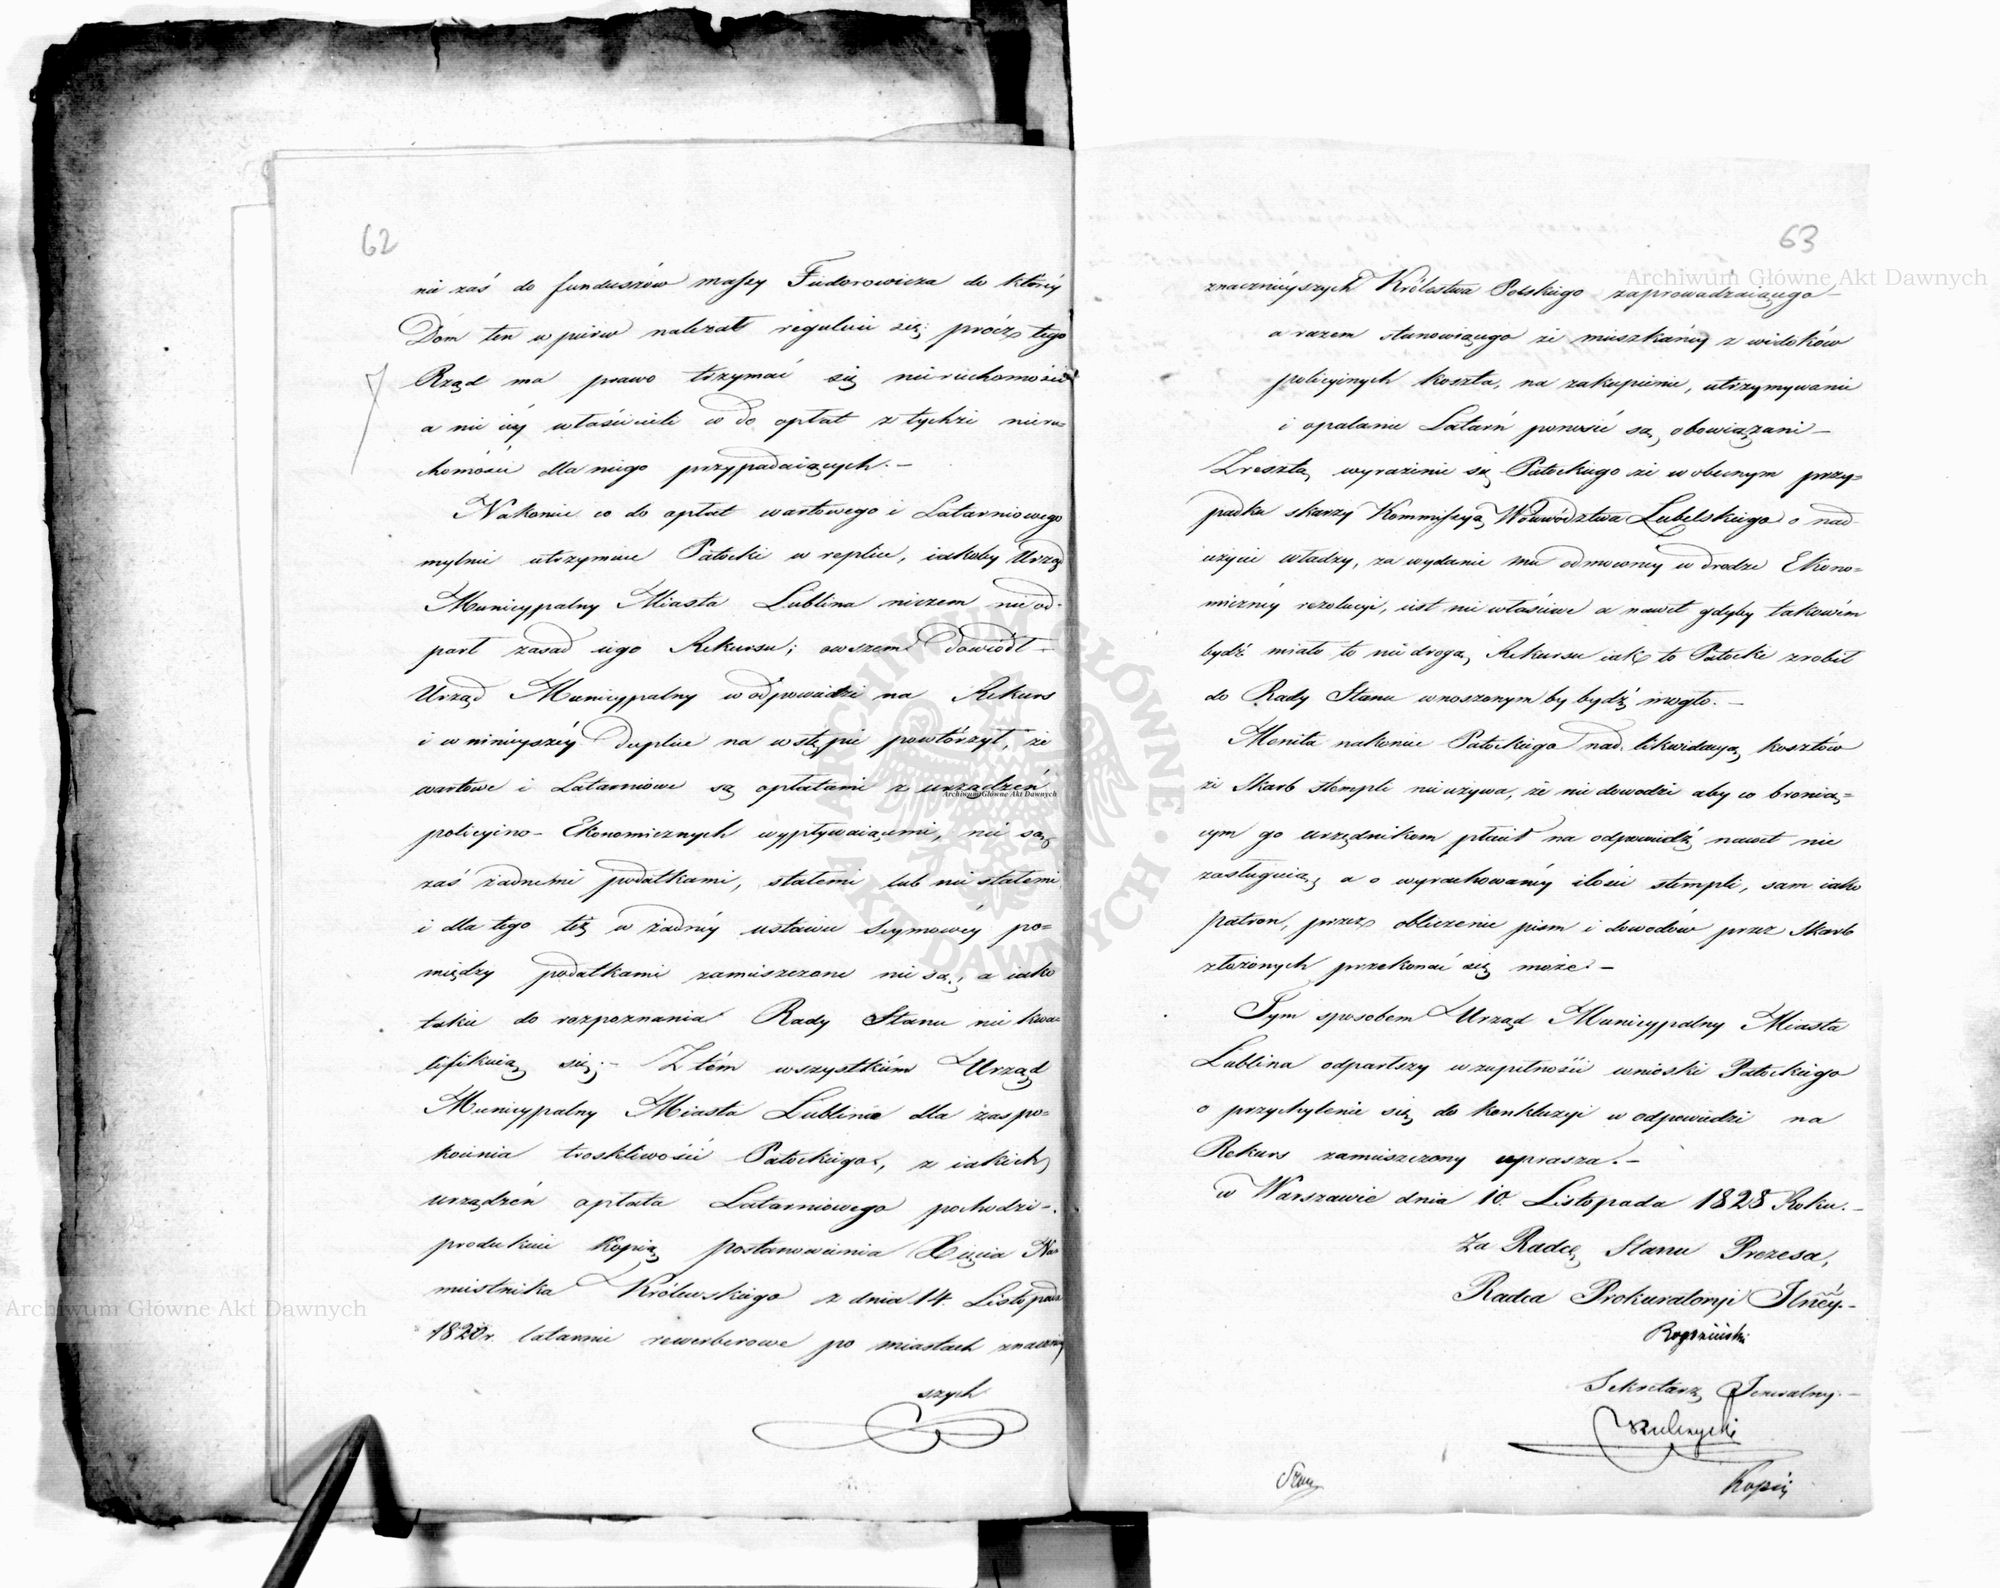 62
nie zaś do funduszów massy Fudorowicza do któréy
Dóm ten w pierw należał reguluie się; prócz tego
Rząd ma prawo trzymać się nieruchomości
a nie iéy właścicieli co do opłat z tychże nieru=
chomości dla niego przypadaiących. –
Nakoniec co do opłat wartowego i Latarniowego
mylnie utrzymuie Patocki w replice, iakoby Urząd
Municypalny Miasta Lublina niczem nie od=
parł zasad iego Rekursu; owszem dowiódł –
Urząd Municypalny w odpowiedzi na Rekurs
i w ninieyszéy duplice na wstępie powtórzył, że
wartowe i Latarniowe są opłatami z urządzeń
policyino- Ekonomicznych wypływaiącemi, nie są
zaś żadnemi podatkami, stałemi lub nie stałemi
i dla tego też w żadnéy ustawie Seymowéy po=
między podatkami zamieszczone nie są, a iako
takie do rozpoznania Rady Stanu nie kwa=
lifikuią się; – Z tém wszystkiém Urząd
Municypalny Miasta Lublina dla zaspo=
koienia troskliwości Patockiego, z iakich
urządzeń opłata Latarniowego pochodzi –
produkuie Kopią postanowienia Xięcia Na=
miestnika Królewskiego z dnia 14. Listopada
1820 r. latarnie rewerberowe po miastach znaczniéy
szych
63
znacznieyszych Królestwa Polskiego zaprowadzaiącego –
a razem stanowiącego że mieszkańcy z widoków
policyinych koszta, na zakupienie, utrzymywanie
i opalanie Latarń ponosić są obowiązani –
Zresztą wyrażenie się Patockiego że w obecnym przy=
padku skarży Kommissyą Woiewództwa Lubelskiego o nad
użycie władzy, za wydanie mu odmowney w drodze Ekono=
micznéy rezolucyi, iest nie właściwe a nawet gdyby takowém
bydź miało to nie drogą Rekursu iak to Patocki zrobił
do Rady Stanu wnoszonym by bydź mogło. –
Monita nakoniec Patockiego nad likwidacyą kosztów
że Skarb stempli nie używa, że nie dowodzi aby co bronią=
cym go urzędnikom płacił na odpowiedź nawet nie
zasługuią a o wyrachowanéy ilości stempli, sam iako
Patron, przez obliczenie pism i dowodów przez Skarb
złożonych przekonać się może. –
Tym sposobem Urząd Municypalny Miasta
Lublina odparłszy w zupełności wnioski Patockiego
o przychylenie się do konkluzyi w odpowiedzi na
Rekurs zamieszczony uprasza. –
w Warszawie dnia 10. Listopada 1828 Roku. –
Za Radcę Stanu Prezesa,
Radca Prokuratoryi Jlnéy. –
Sekretarz Jeneralny. –
Kopię
Archiwum Główne Akt Dawnych
Archiwum Główne Akt Dawnych
Archiwum Główne Akt Dawnych
ARCHIWUM GŁÓWNE · AKT DAWNYCH ·